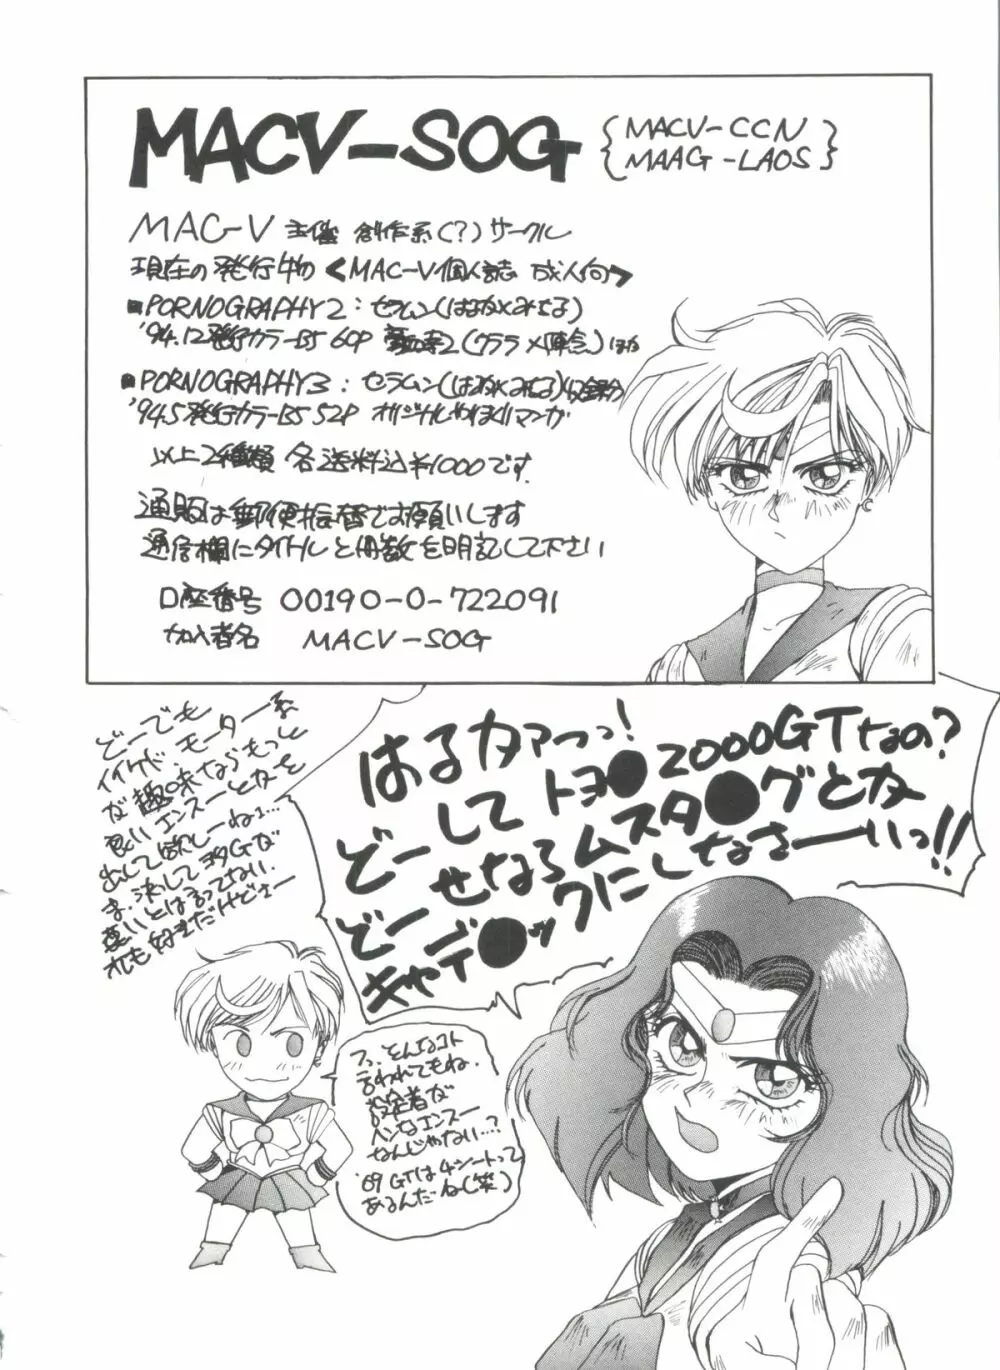 MACV-SOG
{MACV-CCN
MAAG-LAOS}
MAC-V 主催 創作系(?)サークル
現在の発行物<MAC-V個人誌 成人向>
■PORNOGRAPHY2:セラムン(はるかxみちる)
'94.12発行カラーB5 60P
■PORNOGRAPHY3:セラムン(はるかxみちる)収録
'94.5発行カラーB5 52P オリジナルやほぐしマンガ
以上2種類 各送料込¥1000です。
通販は郵便振替でお願いします
通信欄にタイトルと冊数を明記して下さい
口座番号 00190-0-722091
加入者名 MACV-SOG
はるかァっっ!
どーしてトヨ●2000GTなの?
どーせならムスタ●グとか
キャデ●ックにしなさーいっ!!
どーでも
イイケド、モーター系
が趣味ならもっと
良いエンスーとかを
出して欲しーねェ…
ま、決してヨタGが
悪いとは言ってない。
オレも好きだけどさー
フッ、そんなコト
言われてもね。
設定者が
ヘンなエンスー
なんじゃない…?
'69 GTは4シートって
あるんだーね(笑)